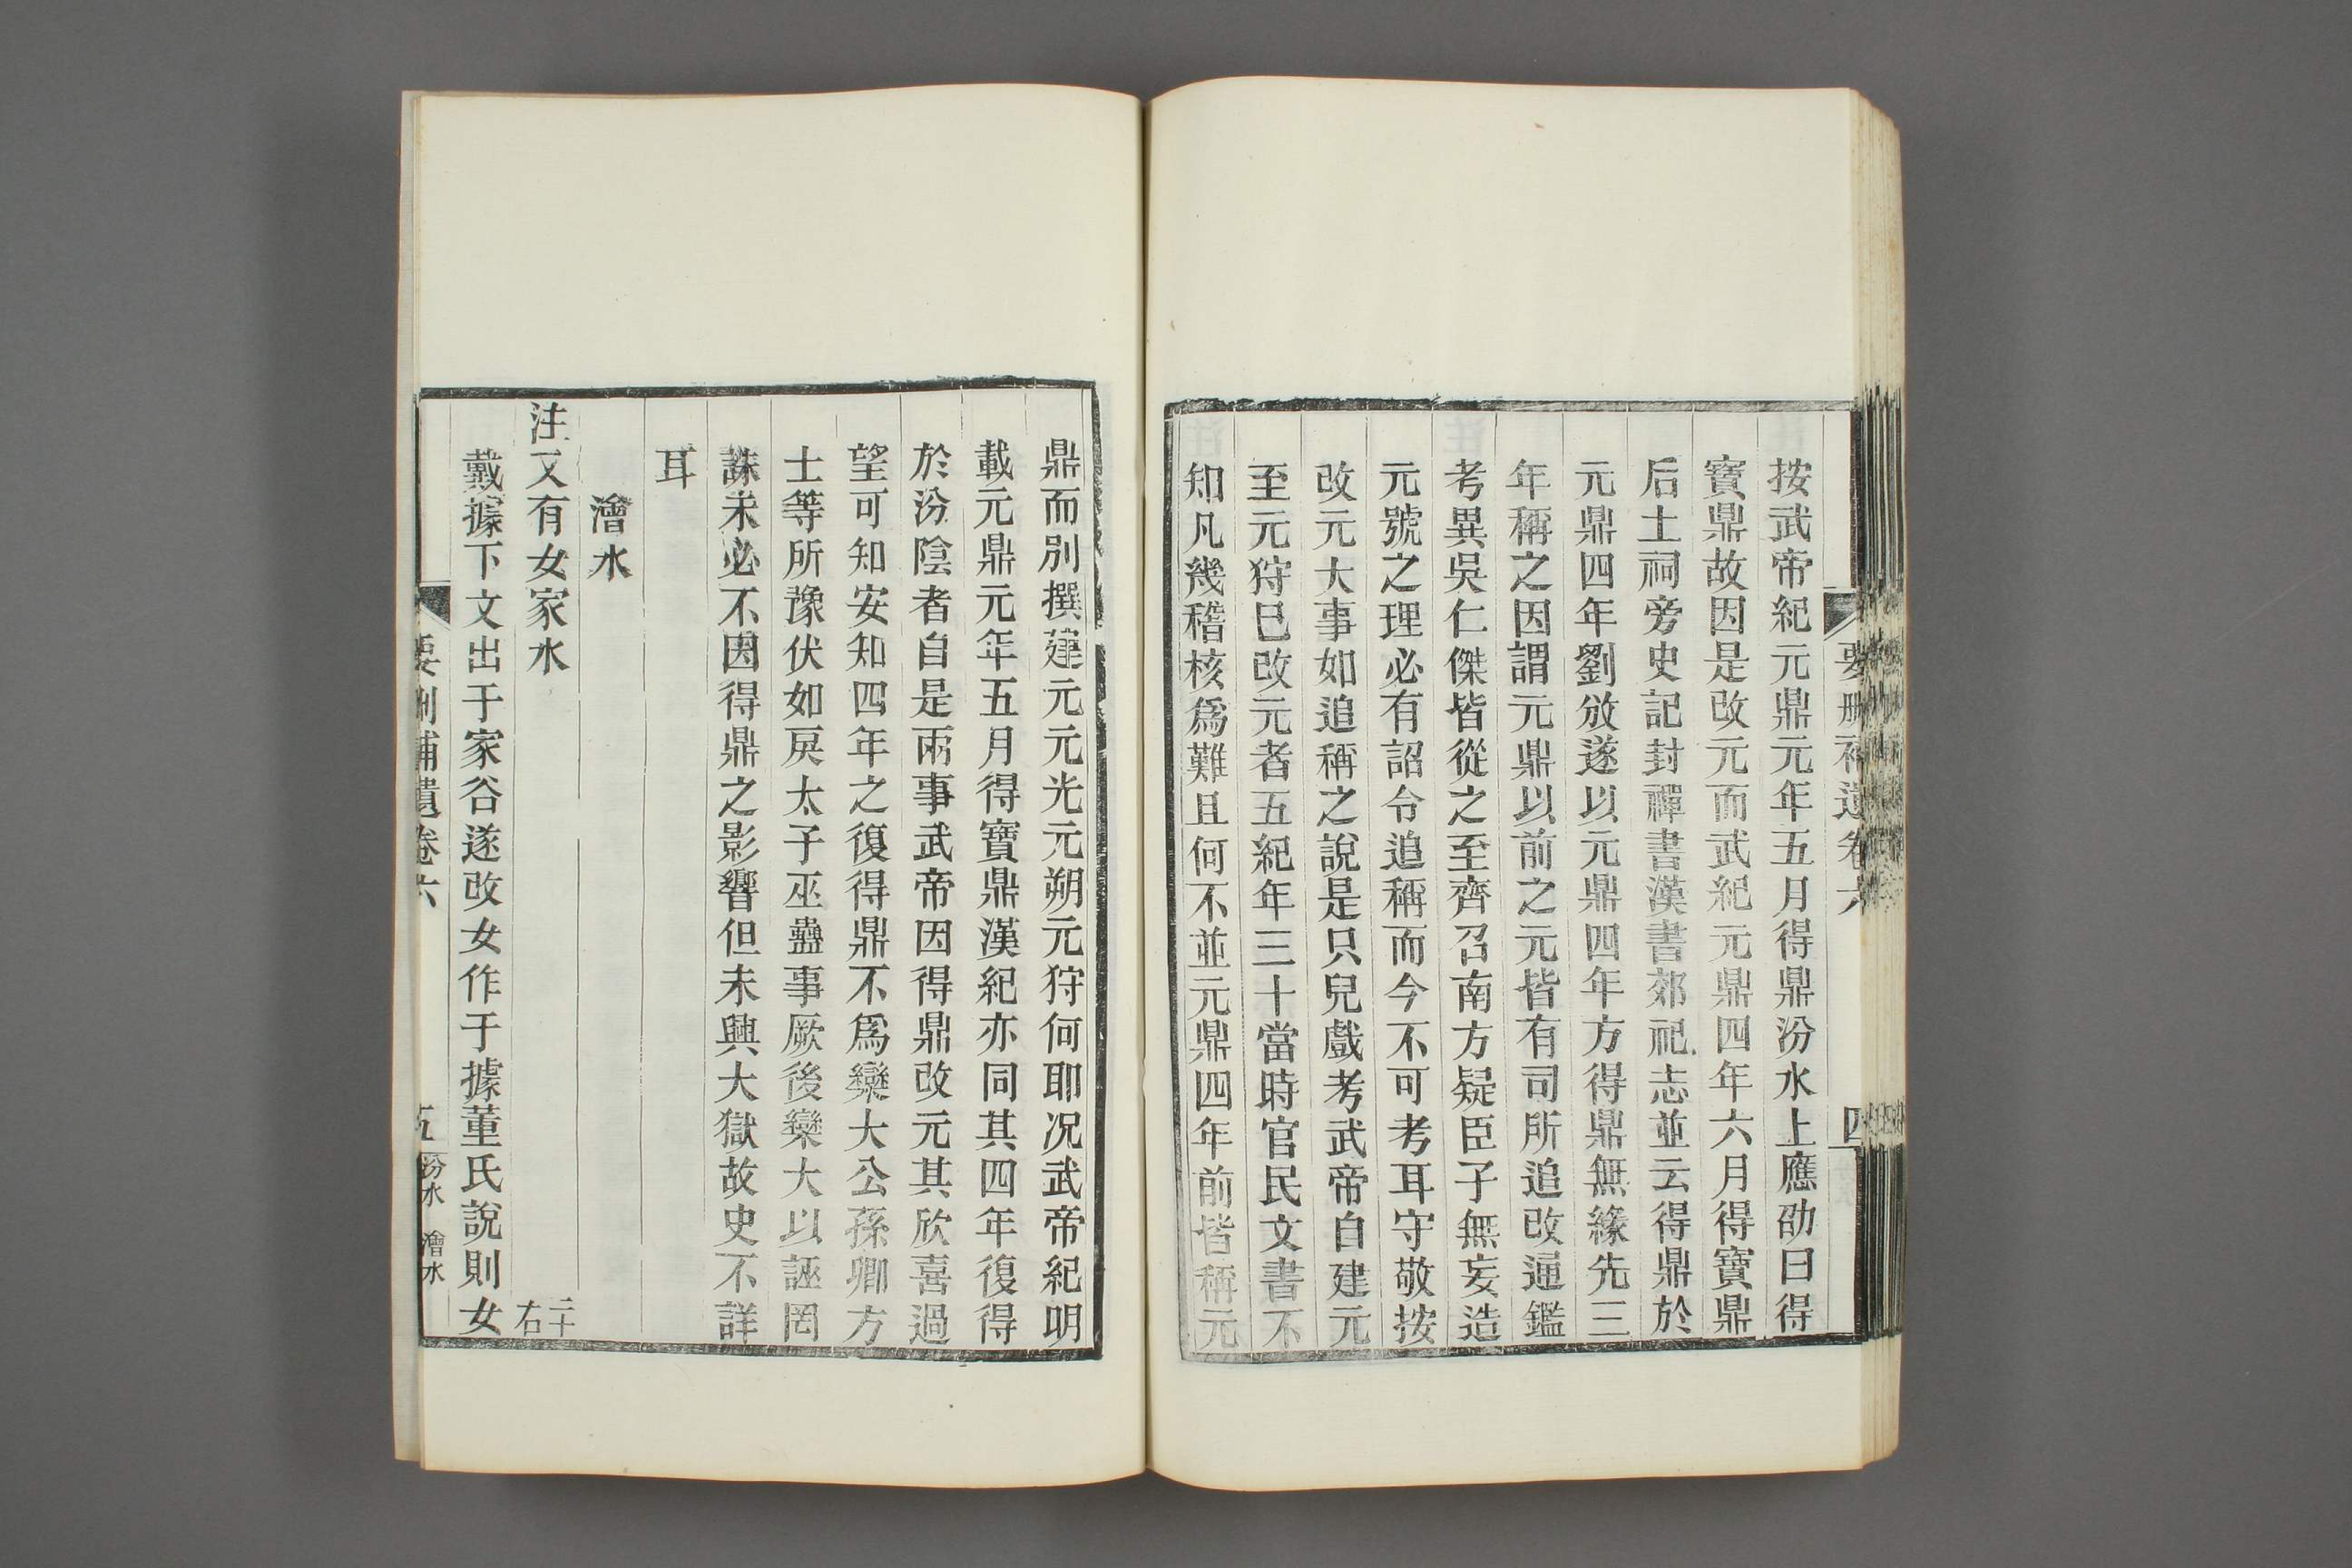 要刪補遺卷六 四
按武帝紀元鼎元年五月得鼎汾水上應劭曰得
寶鼎故因是改元而武紀元鼎四年六月得寶鼎
后土祠旁史記封禪書漢書郊祀志並云得鼎於
元鼎四年劉攽遂以元鼎四年方得鼎無緣先三
年稱之因謂元鼎以前之元皆有司所追改通鑑
考異吳仁傑皆從之至齊召南方疑臣子無妄造
元號之理必有詔令追稱而今不可考耳守敬按
改元大事如追稱之說是只兒戲考武帝自建元
至元狩巳改元者五紀年三十當時官民文書不
知凡幾稽核爲難且何不並元鼎四年前皆稱元
鼎而別撰建元元光元朔元狩何耶况武帝紀明
載元鼎元年五月得寶鼎漢紀亦同其四年復得
於汾陰者自是兩事武帝因得鼎改元其欣喜過
望可知安知四年之復得鼎不爲欒大公孫卿方
士等所豫伏如戾太子巫蠱事厥後欒大以誣罔
誅未必不因得鼎之影響但未興大獄故史不詳
耳
澮水
注又有女家水 二十右
戴據下文出于家谷遂改女作于據董氏說則女
要刪補遺卷六 五 汾水 澮水